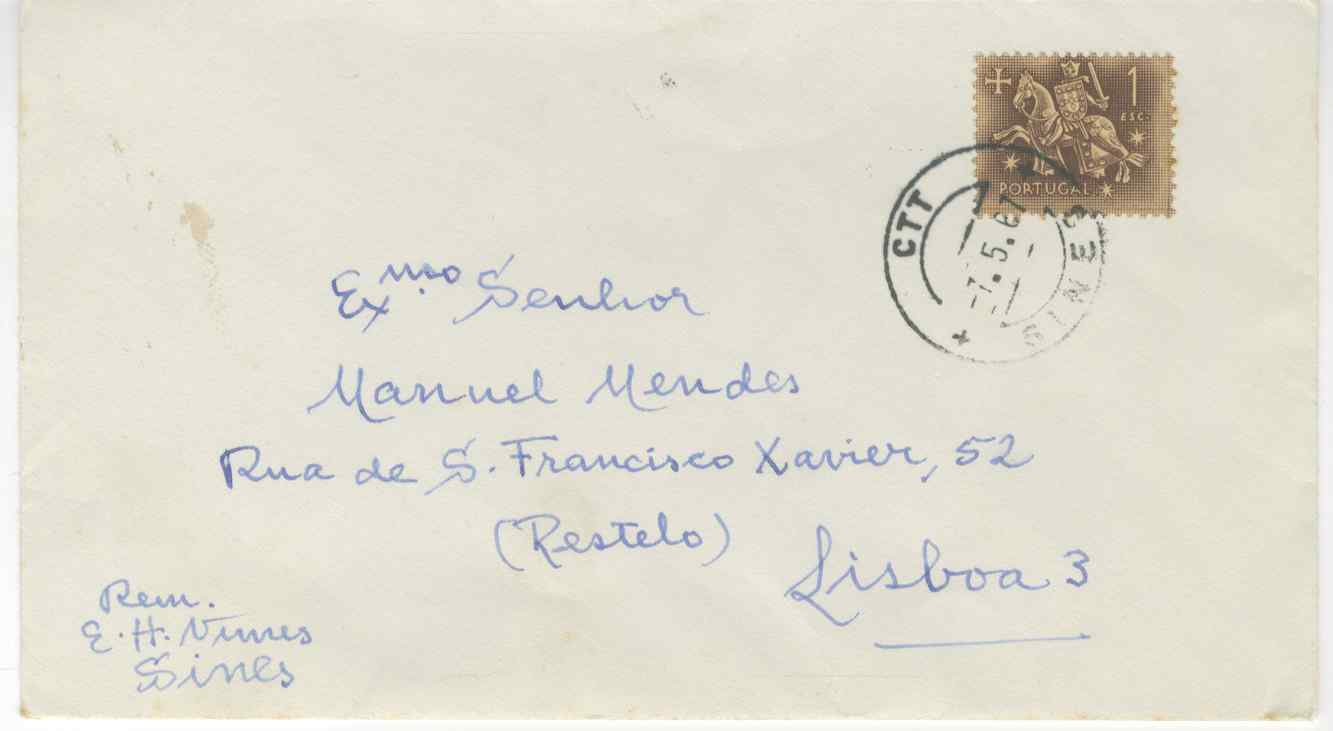 1
ESC.
PORTUGAL
CTT
-7.5.67
SINES
Ex.mo Senhor
Manuel Mendes
Rua de S. Francisco Xavier, 52
(Restelo)
Lisboa 3
Rem.
E. H. Nunes
Sines